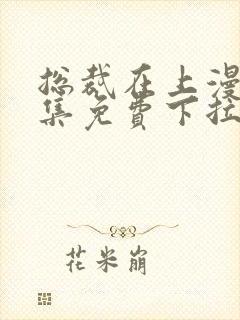 总裁在上漫
集免费下拉
花米崩